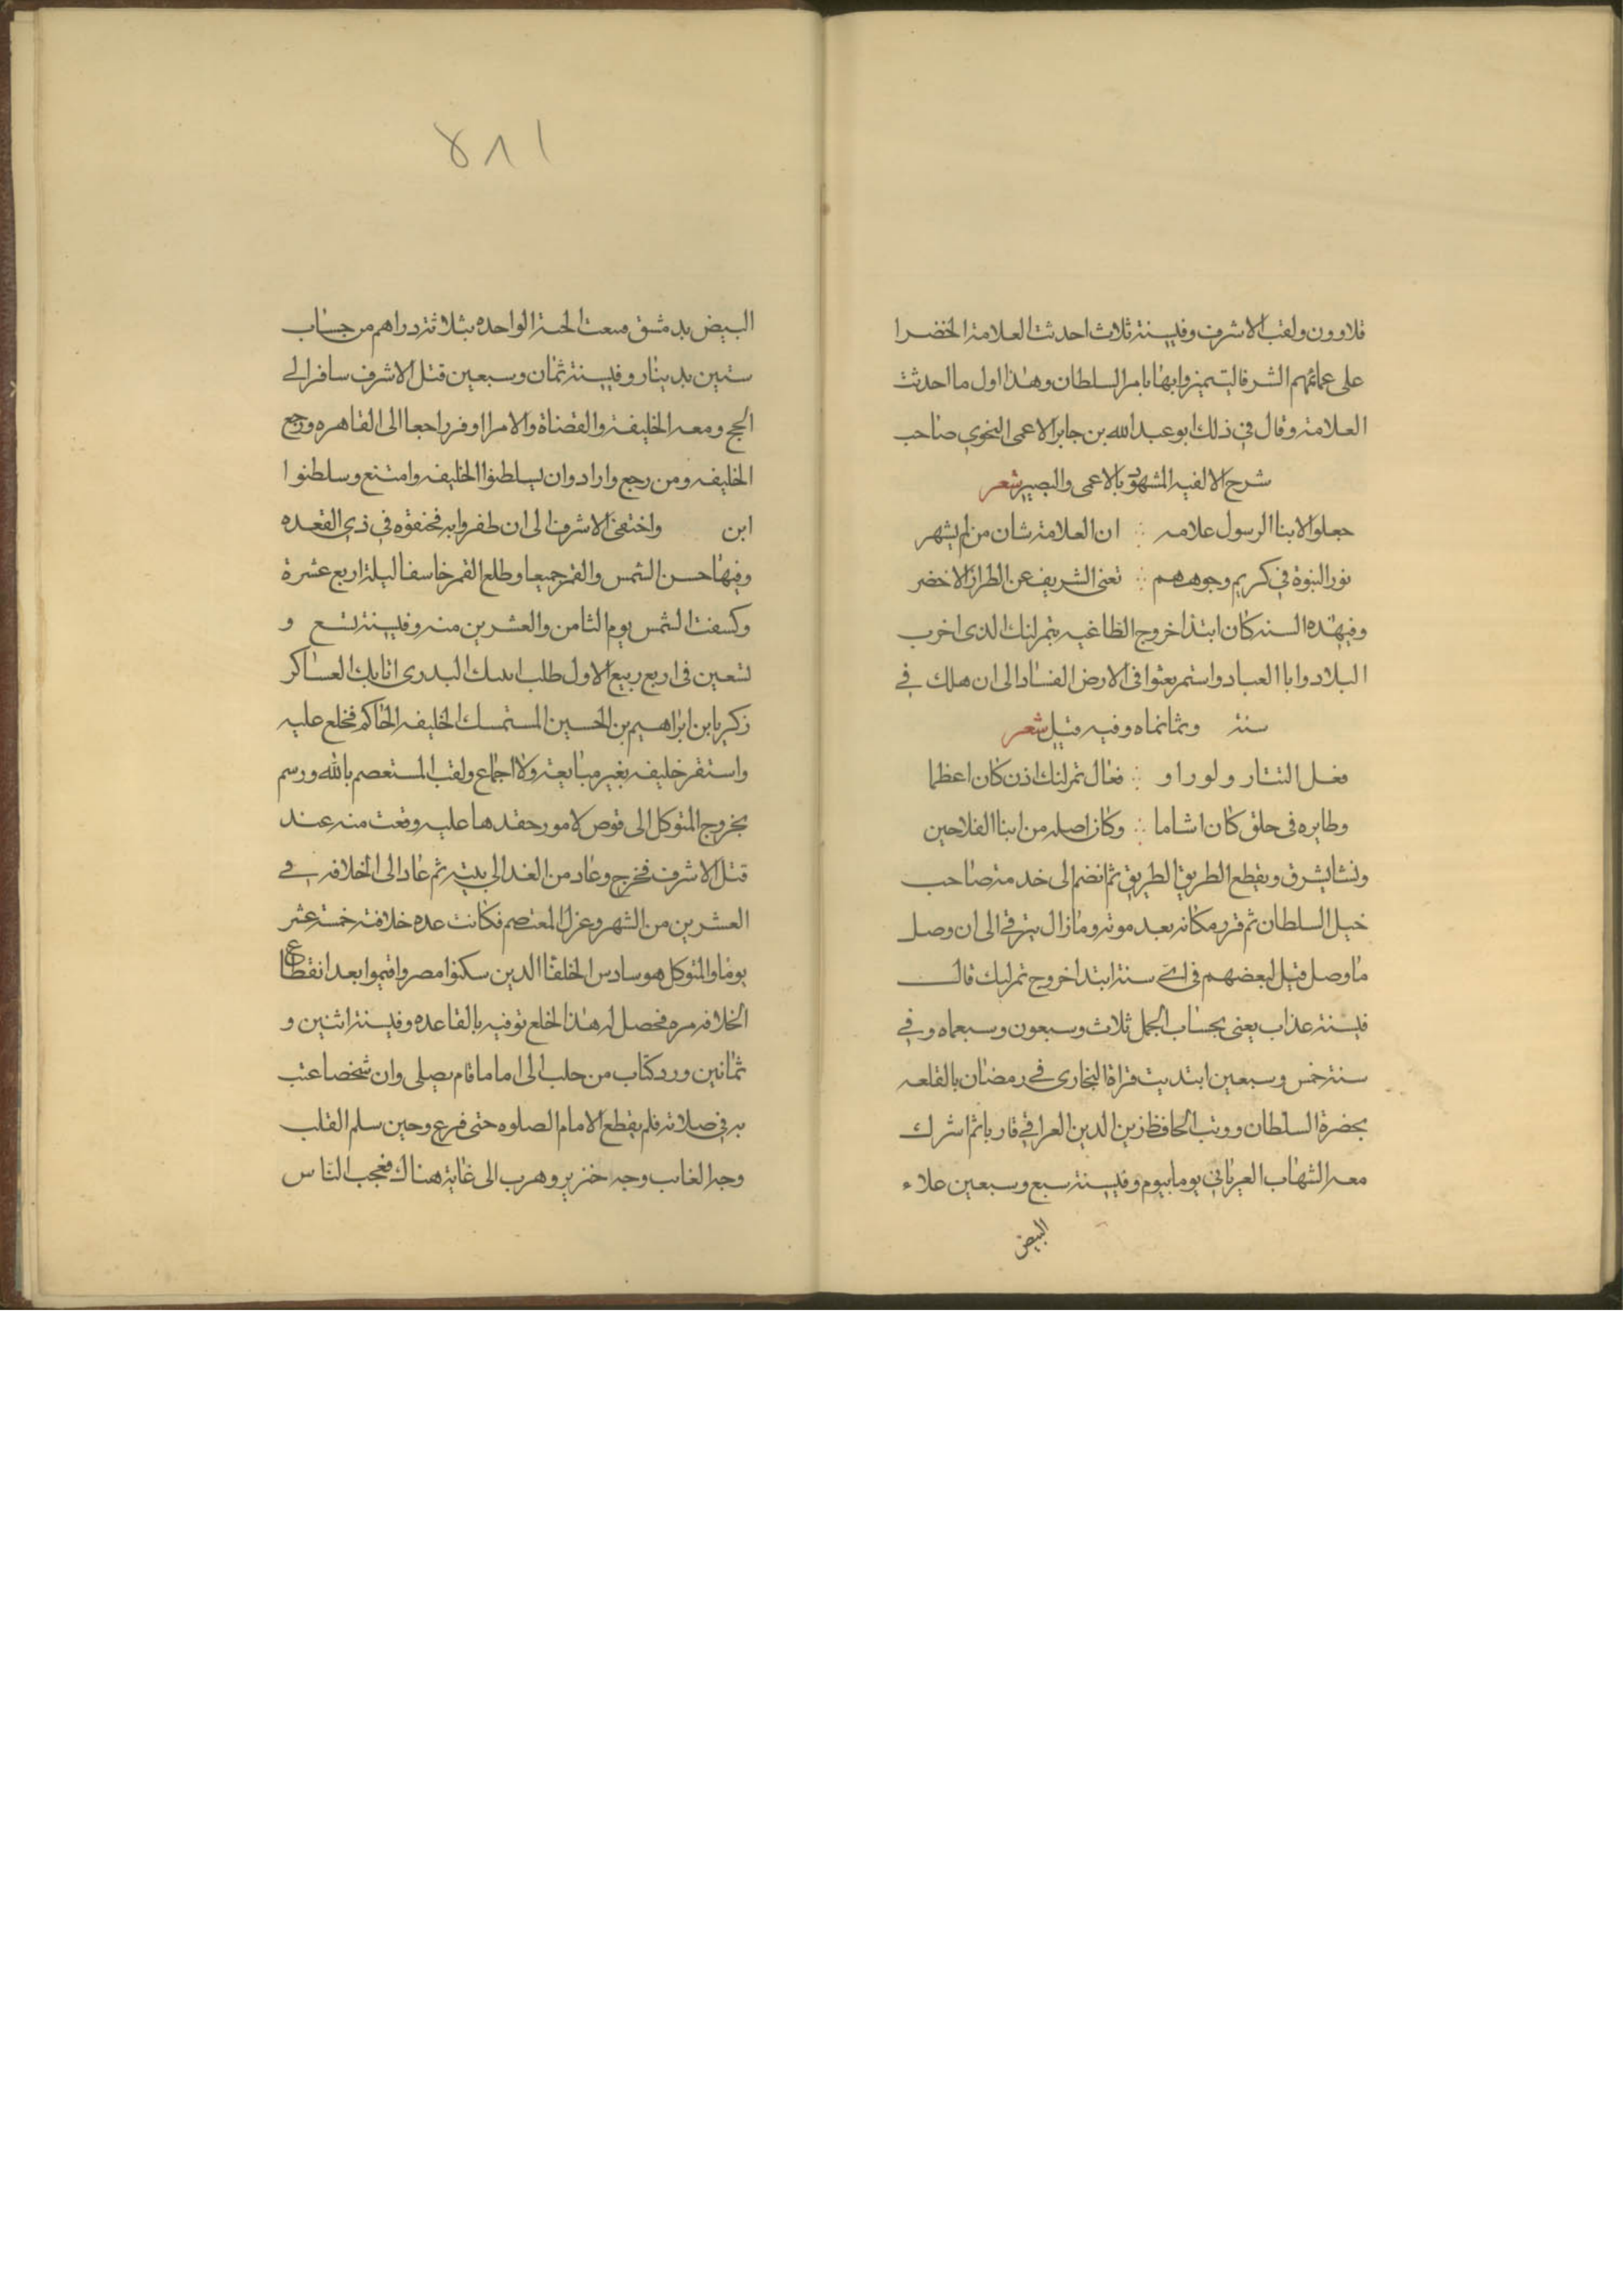 قلاوون ولقب الاشرف وفي سنة ثلاث احدثت العلامة الخضرا
على عمائمهم الشرفا ليتميزوا بها بامر السلطان وهذا اول ما احدثت
العلامة وقال في ذلك ابو عبد الله بن جابر الاعمى النحوي صاحب
شرح الالفيه المشهور بالاعمى والبصير شعر
جعلوا لابنا الرسول علامه ∴ ان العلامة شان من لم يشهر
نور النبوة في كريم وجوههم ∴ تغنى الشريف عن الطراز الاخضر
وفي هذه السنه كان ابتدا خروج الطاغيه تمرلنك الذى اخرب
البلاد وابا العباد واستمر يعثوا فى الارض الفساد الى ان هلك في
سنة وثمانماه وفيه قيل شعر
التتار ولو راو ∴ فعال تمرلنك اذن كان اعظما
وطايره فى حلق كان اشاما ∴ وكان اصله من ابنا الفلاحين
ونشا يسرق ويقطع الطريق الطريق ثم انضم الى خدمة صاحب
خيل السلطان ثم قرر مكانه بعد موته وما زال يترقي الى ان وصل
ما وصل قيل لبعضهم فى اي سنة ابتدا خروج تمرلنك قال
في سنة عذاب يعنى بحساب الجمل ثلاث وسبعون وسبعماه وفي
سنة خمس وسبعين ابتديت قراة البخارى في رمضان بالقلعه
بحضرة السلطان ورتب الحافظ زين الدين العراقي قاريا ثم اشرك
معه الشهاب العرياني يوما بيوم وفي سنة سبع وسبعين علاء
البيض
١٨٤
البيض بدمشق فبيعت الحبة الواحده بثلاثة دراهم من حساب
ستين بدينار وفي سنة ثمان وسبعين قتل الاشرف سافر الي
الحج ومعه الخليفة والقضاة والامرا وفر راجعا الى القاهره ورجع
الخليفه ومن رجع وارادوا ان يسلطنوا الخليفه وامتنع وسلطنوا
ابن واختفى الاشرف الى ان ظفروا به فخنقوه في ذي القعده
وفيها خسف الشمس والقمر جميعا وطلع القمر خاسفا ليلة اربع عشرة
وكسفت الشمس يوم الثامن والعشرين منه وفي سنة تسع و
تسعين فى اربع ربيع الاول طلب البدرى اتابك العساكر
زكريا بن ابراهيم بن الحسين المستمسك الخليفه الحاكم فخلع عليه
واستقر خليفه بغير مبايعة ولا اجماع ولقب المستعصم بالله ورسم
بخروج المتوكل الى قوص لامور حقدها عليه وقعت منه عند
قتل الاشرف فخرج وعاد من الغد الى بيته ثم عاد الى الخلافه في
العشرين من الشهر وعزل المعتصم فكانت عده خلافة خمسة عشر
يوما والمتوكل هو سادس الخلفا الذين سكنوا مصر واقيموا بعد انقطاع
الخلافه مره فحصل له هذا الخلع توفيه بالقاعده وفي سنة اثنين و
ثمانين ورد كتاب من حلب الى اماما قام يصلى وان شخصا عتب
به في صلاته فلم يقطع الامام الصلوه حتى فرع وحين سلم القلب
وجه الغاب وجه خنزير وهرب الى غابة هناك فعجب الناس